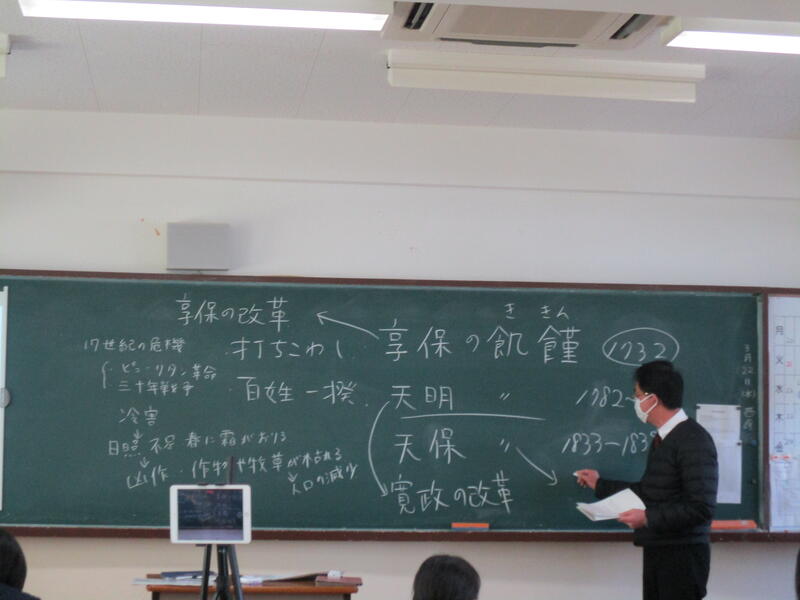 享保の改革
17世紀の危機
ピューリタン革命
三十年戦争
冷害
日照不足 春に霜がおりる
凶作・作物や牧草がかれる
人口の減少
打ちこわし
百姓一揆
き きん
享保の飢饉 1732
天明 〃 1782~
天保 〃 1833-183
寛政の改革
3月22日(水)
月
火
水
木
金